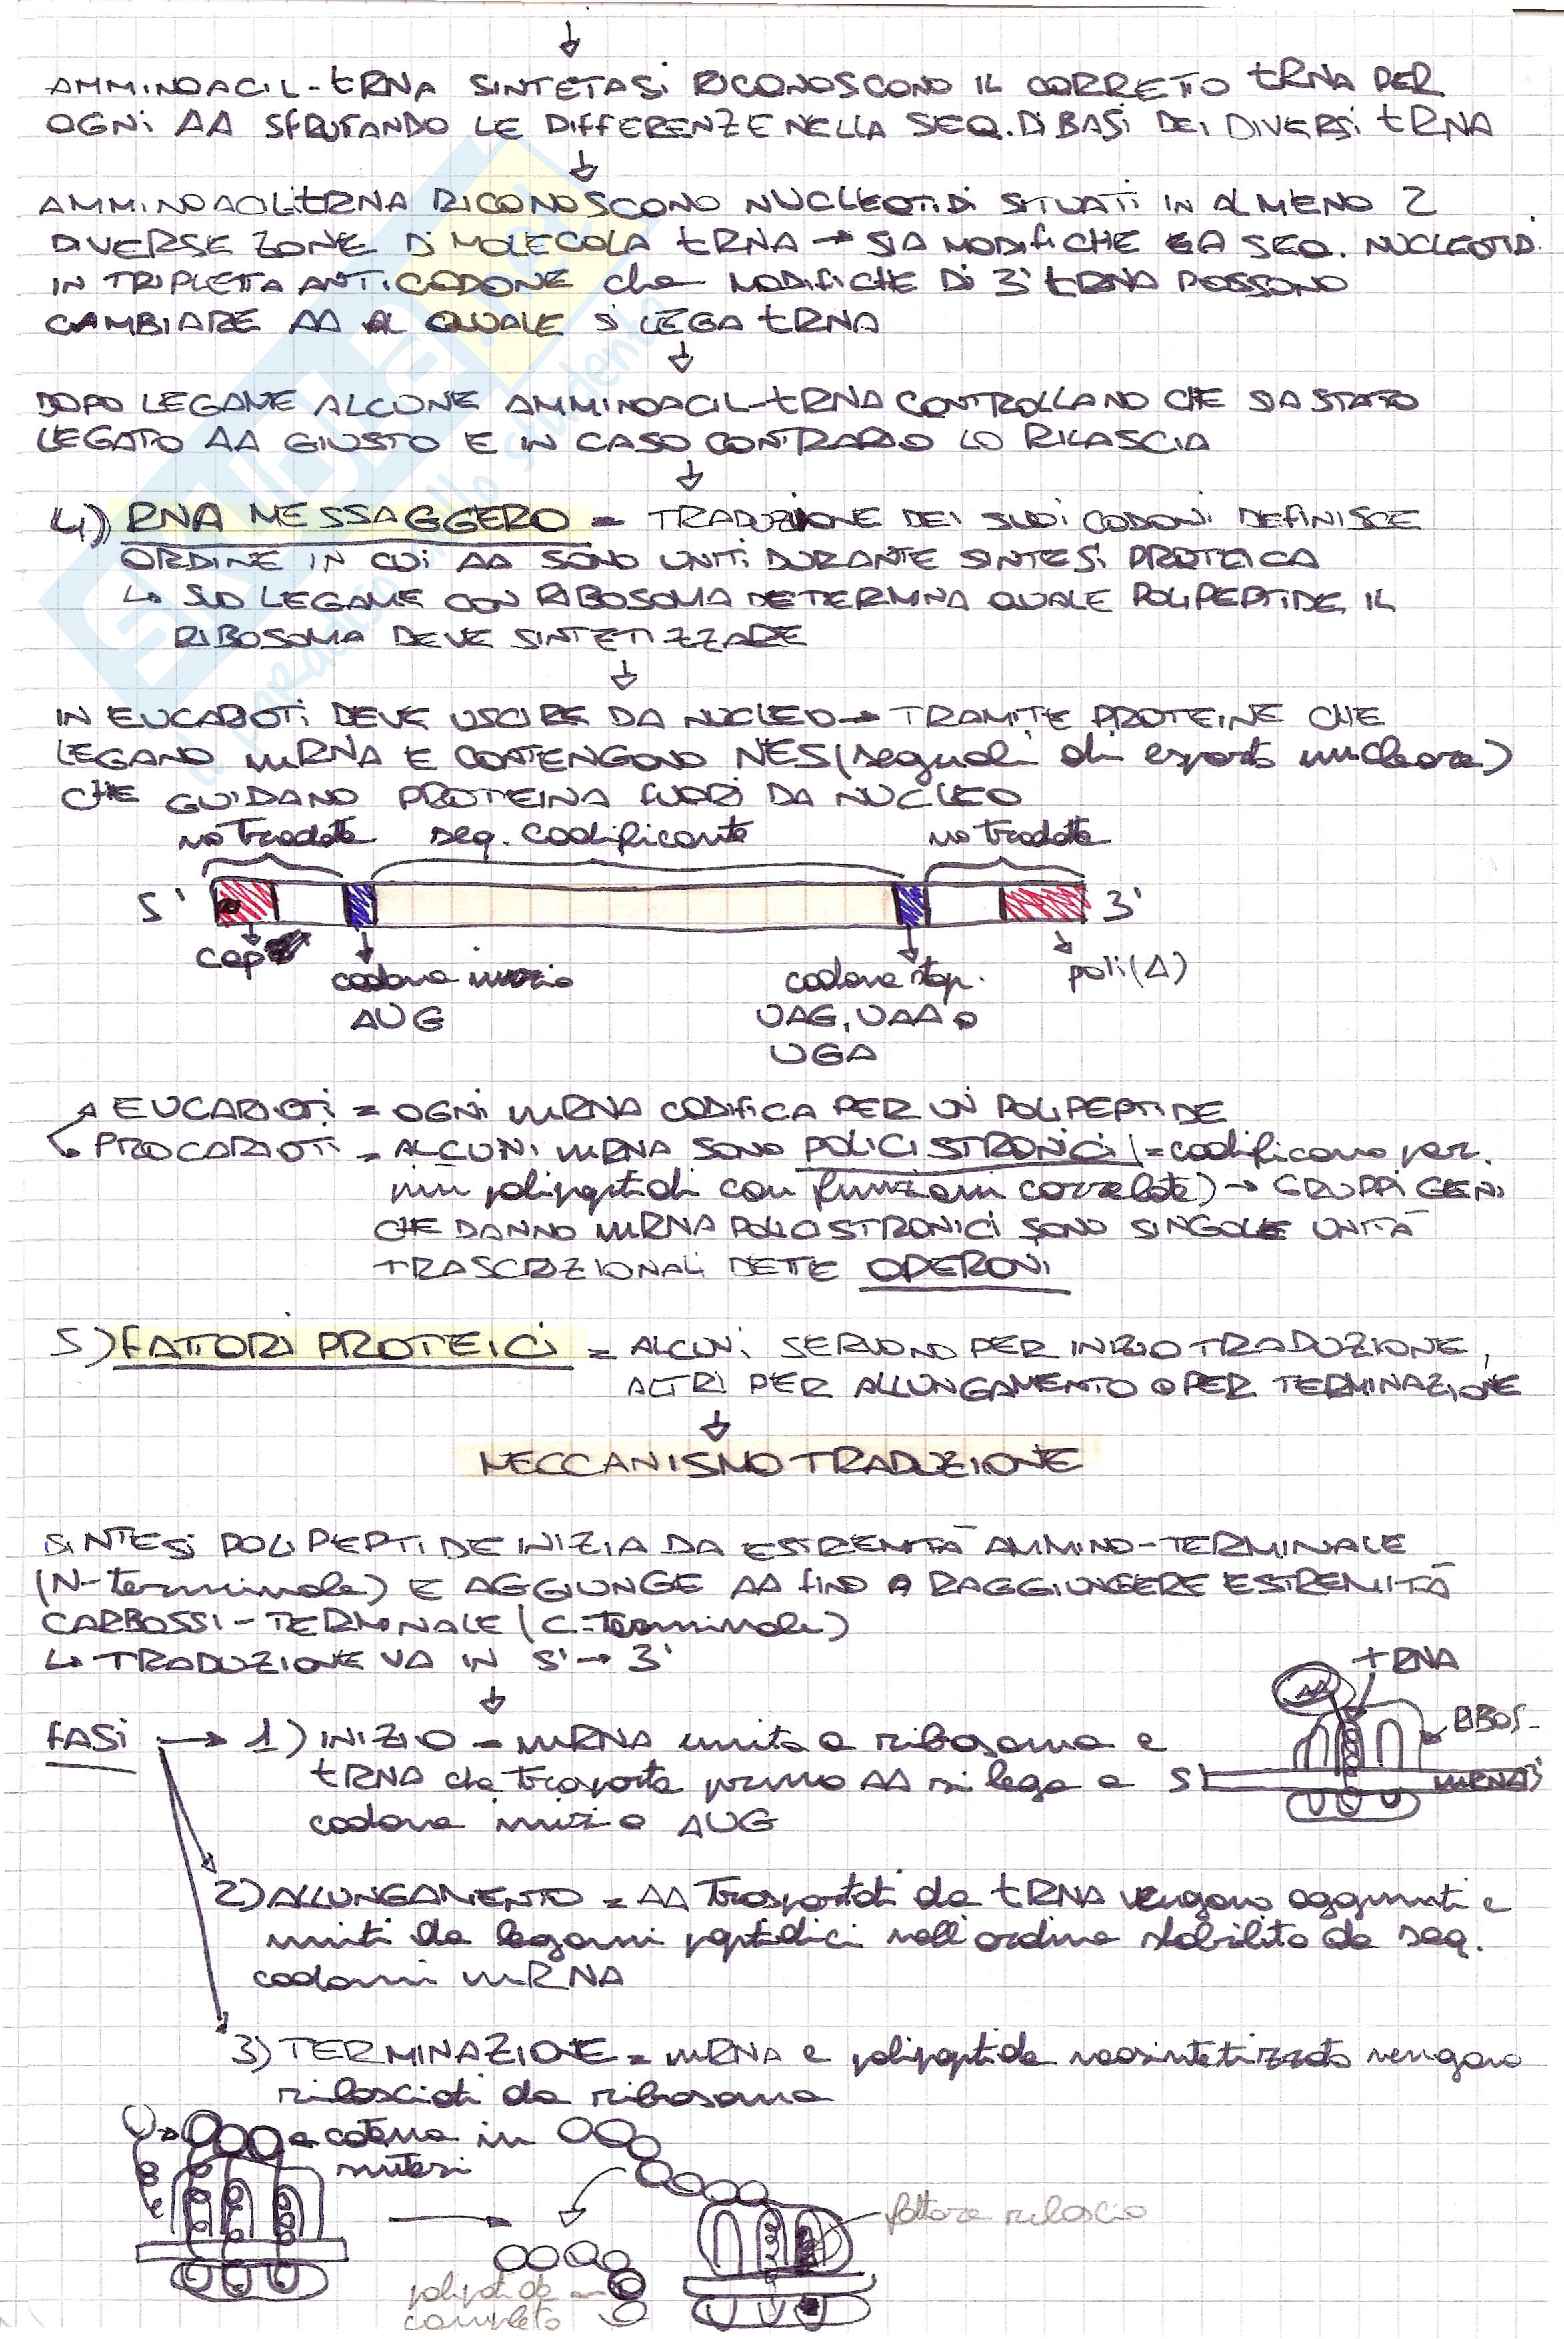 ↓
AMMINOACIL-tRNA SINTETASI RICONOSCONO IL CORRETTO tRNA PER
OGNI AA SFRUTANDO LE DIFFERENZE NELLA SEQ. DI BASI DEI DIVERSI tRNA
↓
AMMINOACILtRNA RICONOSCONO NUCLEOTIDI SITUATI IN ALMENO 2
DIVERSE ZONE DI MOLECOLA tRNA → SIA MODIFICHE SEQ. NUCLEOTID.
IN TRIPLETTA ANTICODONE che MODIFICHE DI 3' tRNA POSSONO
CAMBIARE AA AL QUALE SI LEGA tRNA
↓
DOPO LEGAME ALCUNE AMMINOACIL-tRNA CONTROLLANO CHE SIA STATO
LEGATO AA GIUSTO E IN CASO CONTRARIO LO RILASCIA
↓
4) RNA MESSAGGERO = TRADUZIONE DEI SUOI CODONI DEFINISCE
ORDINE IN CUI AA SONO UNITI DURANTE SINTESI PROTEICA
↳ SUO LEGAME CON RIBOSOMA DETERMINA QUALE POLIPEPTIDE IL
RIBOSOMA DEVE SINTETIZZARE
↓
IN EUCARIOTI DEVE USCIRE DA NUCLEO → TRAMITE PROTEINE CHE
LEGANO mRNA E CONTENGONO NES (segnali di esporto nucleare)
CHE GUIDANO PROTEINA FUORI DA NUCLEO
no tradotta seq. codificante no tradotta
5' 3'
cap codone inizio codone stop. poli(A)
AUG UAG, UAA o
UGA
EUCARIOTI = OGNI mRNA CODIFICA PER UN POLIPEPTIDE
PROCARIOTI = ALCUNI mRNA SONO POLICISTRONICI (=codificano per
più polipeptidi con funzioni correlate) → GRUPPI GENI
CHE DANNO mRNA POLICISTRONICI SONO SINGOLE UNITÀ
TRASCRIZIONALI DETTE OPERONI
5) FATTORI PROTEICI = ALCUNI SERVONO PER INIZIO TRADUZIONE,
ALTRI PER ALLUNGAMENTO O PER TERMINAZIONE
↓
MECCANISMO TRADUZIONE
SINTESI POLIPEPTIDE INIZIA DA ESTREMITÀ AMMINO-TERMINALE
(N-terminale) E AGGIUNGE AA FINO A RAGGIUNGERE ESTREMITÀ
CARBOSSI-TERMINALE (C-terminale)
↳ TRADUZIONE VA IN 5' → 3'
↓
tRNA
AA
RIBOS.
5' mRNA 3'
FASI → 1) INIZIO = mRNA unito a ribosoma e
tRNA che trasporta primo AA si lega a
codone inizio AUG
2) ALLUNGAMENTO = AA trasportati da tRNA vengono aggiunti e
uniti da legami peptidici nell'ordine stabilito da seq.
codoni mRNA
3) TERMINAZIONE = mRNA e polipeptide neosintetizzato vengono
rilasciati da ribosoma
catena in
sintesi
fattore rilascio
polipeptide
completo